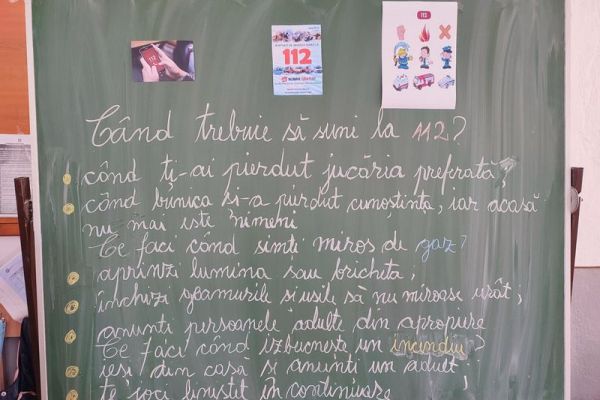 112
112
Când trebuie să suni la 112?
când ți-ai pierdut jucăria preferată;
când bunica și-a pierdut cunoștința, iar acasă
nu mai este nimeni
Ce faci când simți miros de gaz?
aprinzi lumina sau bricheta;
închizi geamurile și ușile să nu miroase urât;
anunți persoanele adulte din apropiere
Ce faci când izbucnește un incendiu?
ieși din casă și anunți un adult;
te joci liniștit în continuare